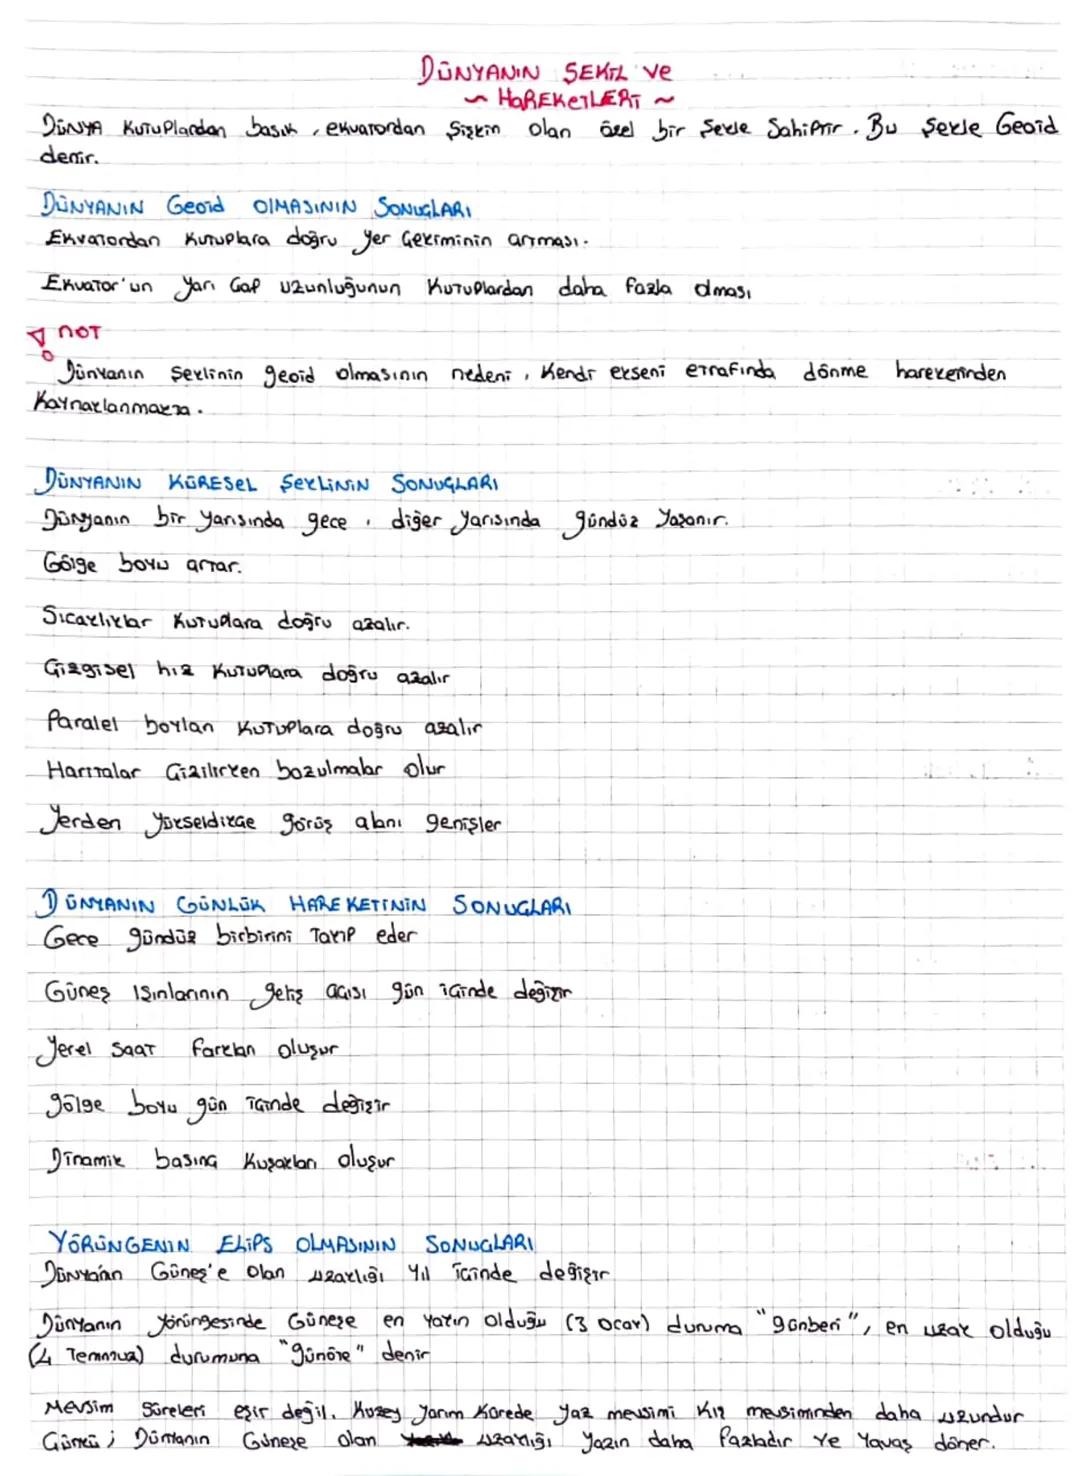 DÜNYANIN ŞEKİL ve
~ HAREKETLERİ ~
DÜNYA Kutuplardan basık, ekvatordan şişkin olan özel bir şekle sahiptir. Bu şekle Geoid
denir.
DÜNYANIN Geoid OLMASININ SONUÇLARI
Ekvatordan Kutuplara doğru yer çekiminin artması.
Ekvator'un yarı çap uzunluğunun Kutuplardan daha fazla olması
NOT
Dünyanın şeklinin geoid olmasının nedeni, kendi ekseni etrafında dönme hareketinden
Kaynaklanmakta.
DÜNYANIN KÜRESEL ŞEKLİNİN SONUÇLARI
Dünyanın bir yarısında gece, diğer yarısında gündüz yaşanır.
Gölge boyu artar.
Sıcaklıklar Kutuplara doğru azalır.
Çizgisel hız Kutuplara doğru azalır
Paralel boyları Kutuplara doğru azalır
Haritalar Çizilirken bozulmalar olur
Yerden yükseldikçe görüş alanı genişler
DÜNYANIN GÜNLÜK HAREKETİNİN SONUÇLARI
Gece gündüz birbirini takip eder
Güneş ışınlarının geliş açısı gün içinde değişir
Yerel saat farkları oluşur
gölge boyu gün içinde değişir
Dinamik basınç Kuşakları oluşur
YÖRÜNGENIN ELİPS OLMASININ SONUÇLARI
Dünya'nın Güneş'e olan uzaklığı yıl içinde değişir
Dünyanın yörüngesinde Güneşe en yakın olduğu (3 ocak) duruma "günberi", en uzak olduğu
(4 Temmuz) durumuna "günöte" denir
Mevsim Süreleri eşit değil. Kuzey yarım Kürede yaz mevsimi Kış mevsiminden daha uzundur
Çünkü; Dünyanın Güneşe olan uzaklığı yazın daha fazladır ve yavaş döner.